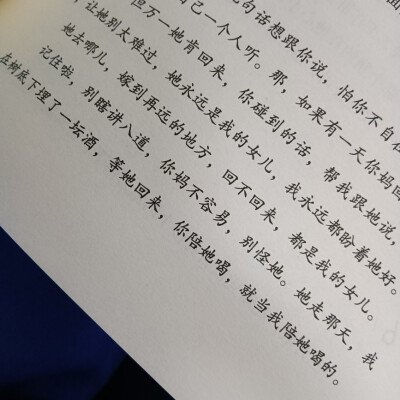 的话想跟你说，怕你不自在
己一个人听。那，如果有一天你妈回
但万一她肯回来，你碰到的话，帮我跟她说，
让她别太难过，她永远是我的女儿，我永远都盼着她好。
她去哪儿，嫁到再远的地方，回不回来，都是我的女儿。
记住啦，别瞎讲八道，你妈不容易，别怪她。她走那天，我
在树底下埋了一坛酒，等她回来，你陪她喝，就当我陪她喝的。